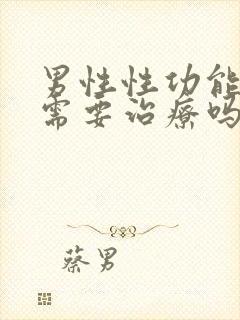 男性性功能
需要治疗吗
蔡男